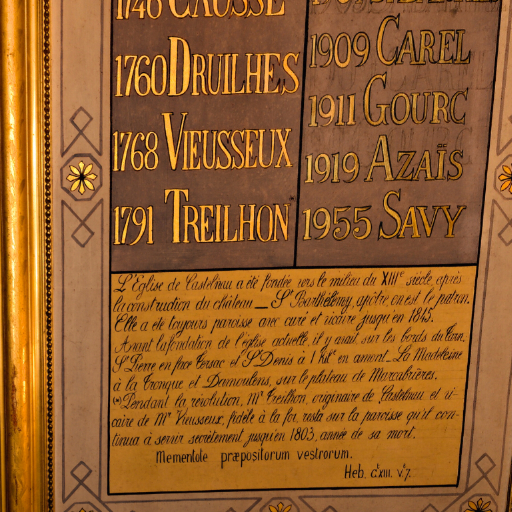 1746 CAUSSE
1760 DRUILHES
1768 VIEUSSEUX
1791 TREILHON (*)
1909 CAREL
1911 GOURC
1919 AZAÏS
1955 SAVY
L'Eglise de Castelnau a été fondée vers le milieu du XIIIe siècle, après
la construction du château _ St Barthélémy, apôtre en est le patron.
Elle a été toujours paroisse avec curé et vicaire jusqu'en 1845.
Avant la fondation de l'église actuelle, il y avait sur les bords du Tarn,
St Pierre en face Tersac et St Denis à 1 kilt en amont _ La Madeleine
à la Cronque et Damoulens, sur le plateau de Marcabrières.
(*) Pendant la révolution, Mr Treilhon, originaire de Castelnau et vi-
caire de Mr Vieusseux, fidèle à la foi, resta sur la paroisse qu'il con-
tinua à servir secrètement jusqu'en 1803, année de sa mort.
Mementote præpositorum vestrorum.
Heb. c. XIII. v. 7.